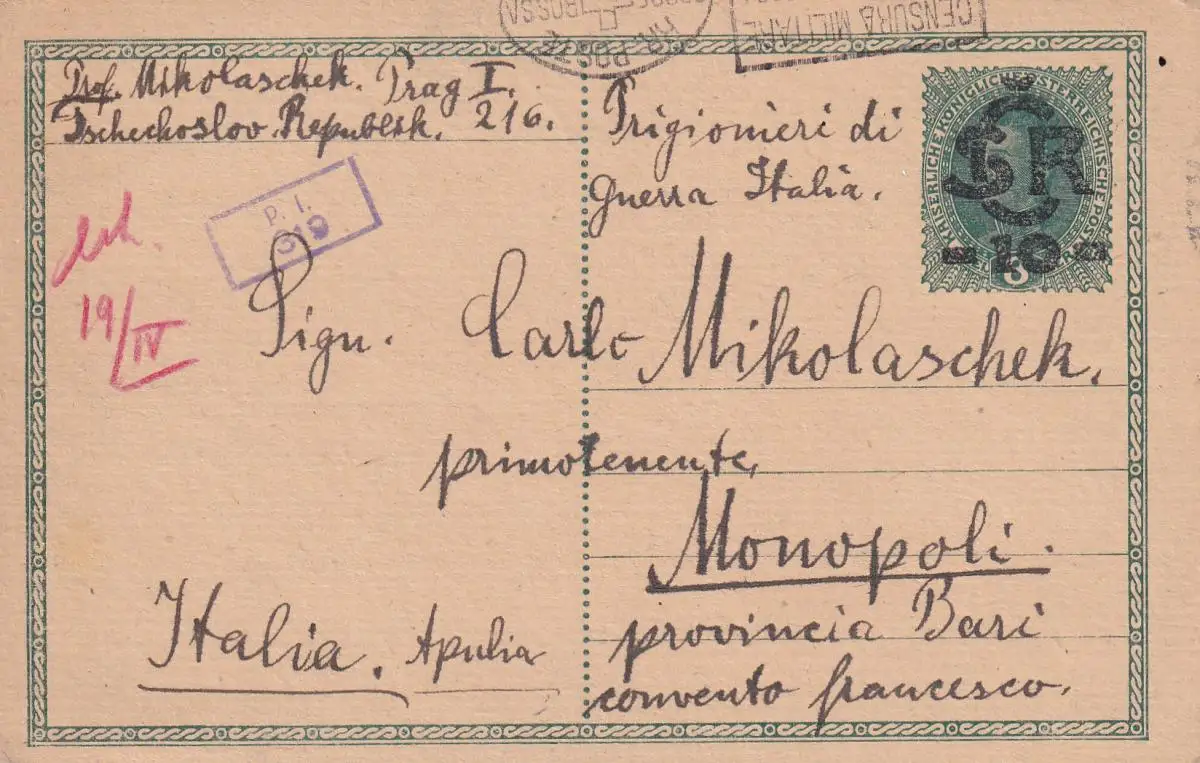 R.R. POSTE
CENSURA MILITARE
Prof. Mikolaschek. Prag I.
Tschechoslov. Republik. 216.
Prigionieri di
guerra Italia.
KAISERLICHE KÖNIGLICHE ÖSTERREICHISCHE POST
ČSR
-10-
P. I.
319
19/IV
Sign. Carlo Mikolaschek.
primotenente,
Monopoli.
Italia. Apulia
provincia Bari
convento francesco.